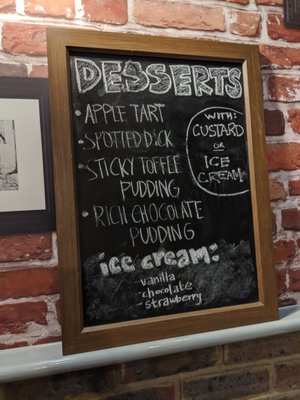 DESSERTS
• APPLE TART
• SPOTTED DICK
• STICKY TOFFEE
PUDDING
• RICH CHOCOLATE
PUDDING
WITH:
CUSTARD
OR
ICE
CREAM
ice cream:
- vanilla
- chocolate
- strawberry